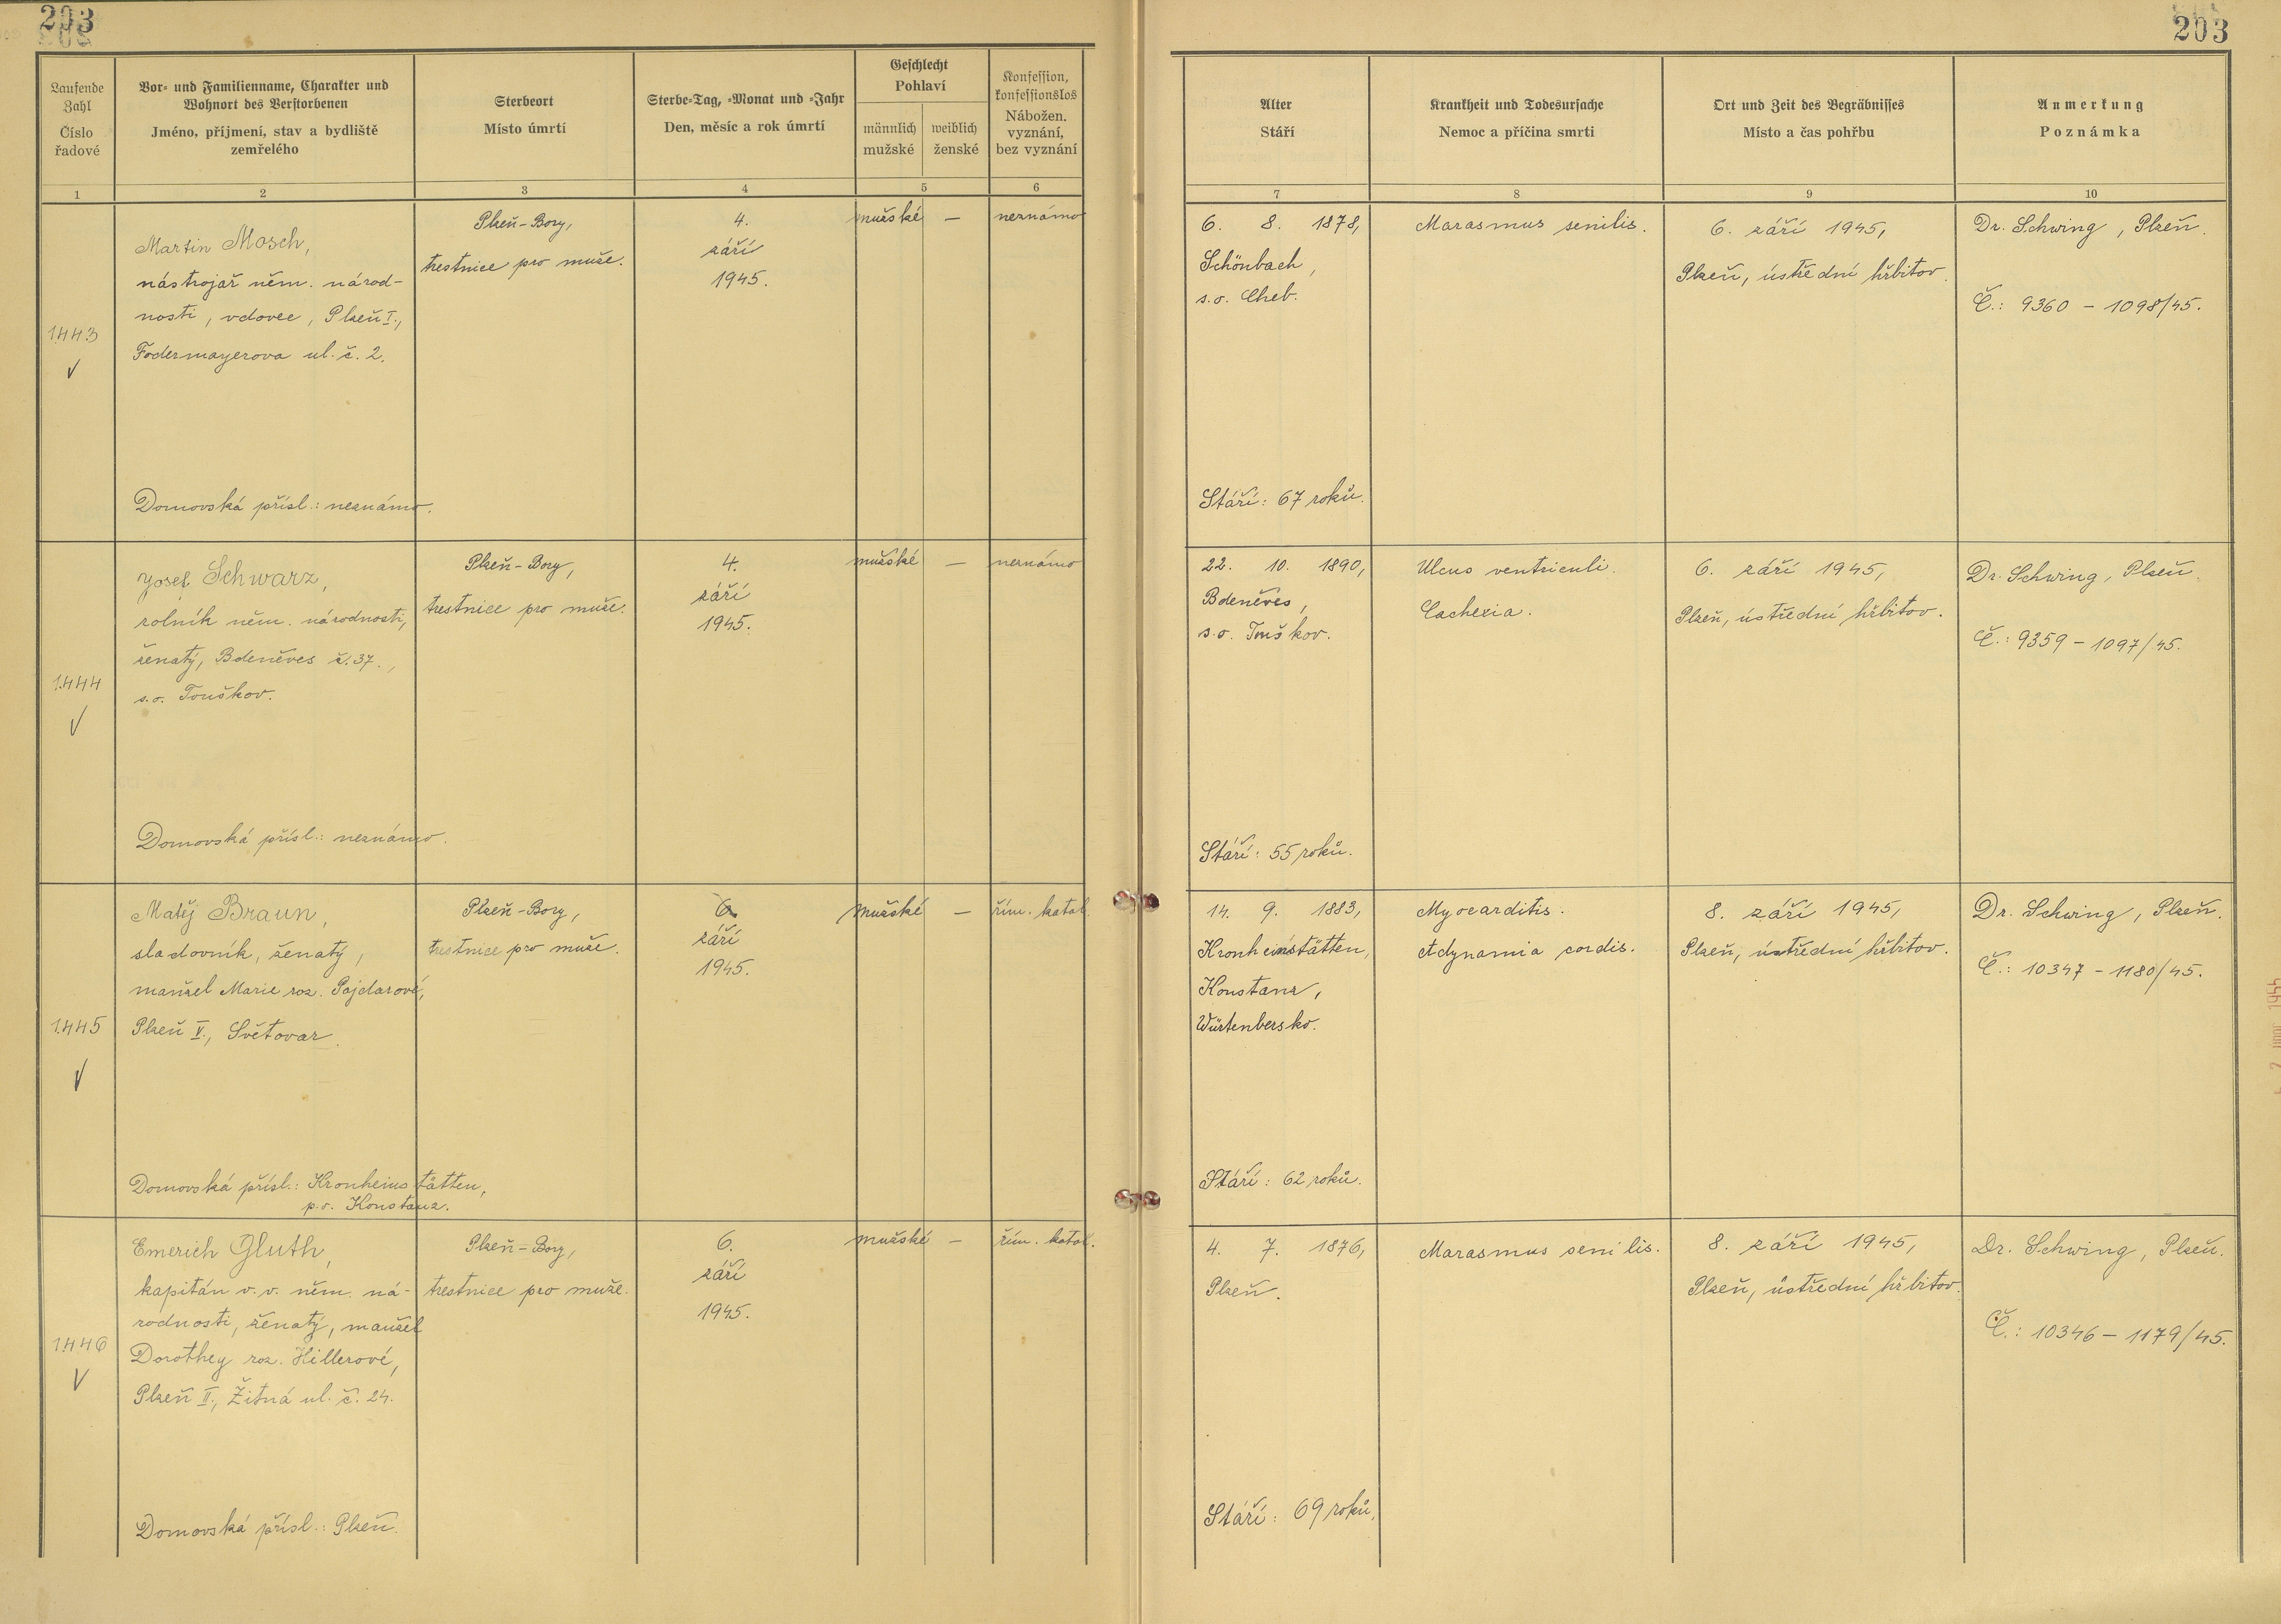 203
203
Laufende Zahl
Číslo řadové
Vor- und Familienname, Charakter und
Wohnort des Verstorbenen
Jméno, příjmení, stav a bydliště
zemřelého
Sterbeort
Místo úmrtí
Sterbe-Tag, -Monat und -Jahr
Den, měsíc a rok úmrtí
Geschlecht
Pohlaví
männlich
mužské
weiblich
ženské
Konfession,
konfessionslos
Nábožen.
vyznání,
bez vyznání
Alter
Stáří
Krankheit und Todesursache
Nemoc a příčina smrti
Ort und Zeit des Begräbnisses
Místo a čas pohřbu
Anmerkung
Poznámka
1 2 3 4 5 6 7 8 9 10
1443
Martin Mosch,
nástrojař něm. národ-
nosti, vdovec, Plzeň I.,
Fodermayerova ul. č. 2.
Domovská přísl.: neznámo.
Plzeň-Bory,
trestnice pro muže.
4.
září
1945.
mužské
—
neznámo
6. 8. 1878,
Schönbach,
s.o. Cheb.
Stáří: 67 roků.
Marasmus senilis.
6. září 1945,
Plzeň, ústřední hřbitov.
Dr. Schwing, Plzeň.
Č.: 9360 - 1098/45.
1444
Josef Schwarz,
rolník něm. národnosti,
ženatý, Bdeněves č. 37.,
s.o. Touškov.
Domovská přísl.: neznámo.
Plzeň-Bory,
trestnice pro muže.
4.
září
1945.
mužské
—
neznámo
22. 10. 1890,
Bdeněves,
s.o. Touškov.
Stáří: 55 roků.
Ulcus ventriculi.
Cachexia.
6. září 1945,
Plzeň, ústřední hřbitov.
Dr. Schwing, Plzeň.
Č.: 9359 - 1097/45.
1445
Matěj Braun,
sladovník, ženatý,
manžel Marie roz. Pajdarové,
Plzeň V., Světovar.
Domovská přísl.: Kronheimstätten,
p.o. Konstanz.
Plzeň-Bory,
trestnice pro muže.
6.
září
1945.
mužské
—
řím. katol.
14. 9. 1883,
Kronheimstätten,
Konstanz,
Würtenbersko.
Stáří: 62 roků.
Myocarditis.
Adynamia cordis.
8. září 1945,
Plzeň, ústřední hřbitov.
Dr. Schwing, Plzeň.
Č.: 10347 - 1180/45.
1446
Emerich Gluth,
kapitán v.v. něm. ná-
rodnosti, ženatý, manžel
Dorothey roz. Hillerové,
Plzeň II., Žitná ul. č. 24.
Domovská přísl.: Plzeň.
Plzeň-Bory,
trestnice pro muže.
6.
září
1945.
mužské
—
řím. katol.
4. 7. 1876,
Plzeň.
Stáří: 69 roků.
Marasmus senilis.
8. září 1945,
Plzeň, ústřední hřbitov.
Dr. Schwing, Plzeň.
Č.: 10346 - 1179/45.